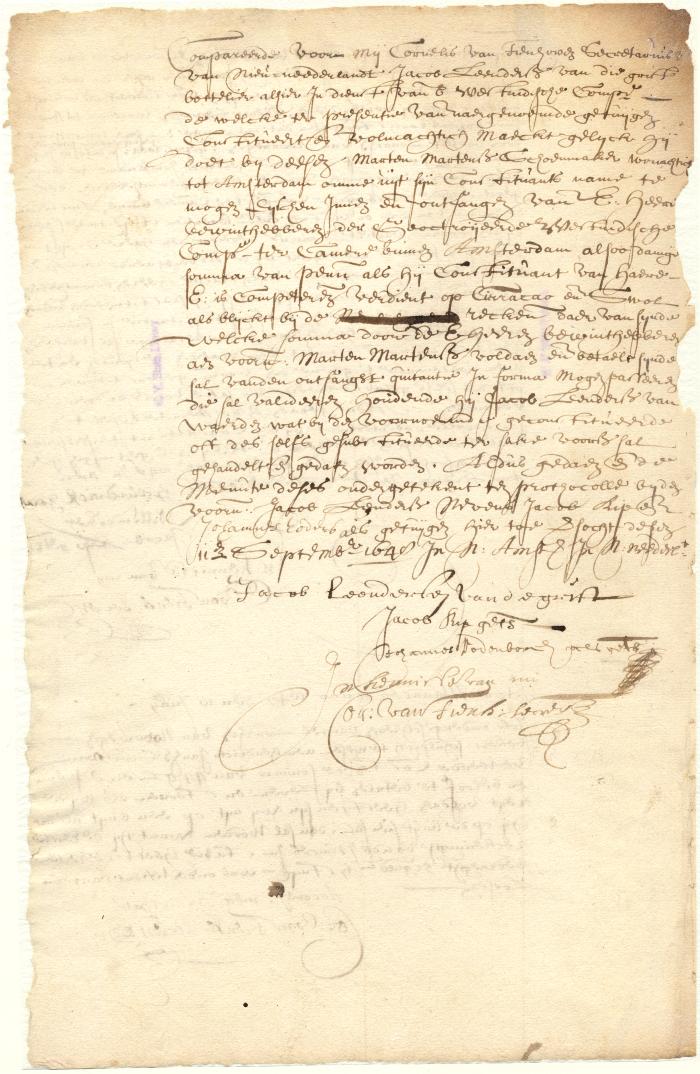 Compareerde voor mij Cornelis van Tienhoven Secretarius
van Nieu neederlandt Jacob Leendersz van die grist
bottelier alhier In dienst van de westindische Compe
de welcke ter presentie van naergenoemde getuijgen
Constitueert en volmachtich maeckt gelijck hij
doet bij deesen Marten Martensz Schoenmaker woonachtig
tot Amsterdam omme uijt sijn Constituants name te
mogen Eijschen Innen en ontfangen van d'E. Heeren
bewinthebberen der Geoctroijeerde Westindische
Compe ter Camere binnen Amsterdam alsoodanige
somma van penn als hij Constituant van haere
E: is Competeren verdient op Curracao en
als blijckt bij de reecken daer van sijnde
welcke somma door de E Heeren bewinthebberen
aen voorn: Marten Martensz voldaen en betaelt sijnde
sal vanden ontfangst quitantie In forma mogen passeeren
die sal valideeren houdende hij Jacob Leendersz van
waerden wat bij den voornoemde geconstitueerde
oft des selfs gesubstitueerde ter sake voorsz sal
gehandelt en gedaen worden. Aldus gedaen en de
Meinute deses onderteekent ten prothocolle bij den
voorn: Jacob Leendersz nevens Jacob Kip en
Johannes Roders als getuijgen hier toe versocht desen
September 1648 In N: Amst: In N: neederlt
Jacob Leendersen van de grist
Jacob Kip gets
Johannes Rodenborch gets
In kennisse van mij
Cor: van Tienh: Secrets